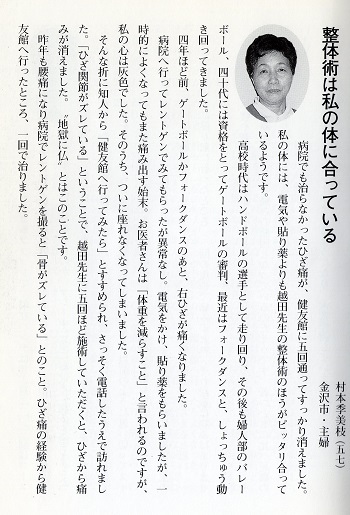 整体術は私の体に合っている
村本季美枝(五七)
金沢市・主婦
病院でも治らなかったひざ痛が、健友館に五回通ってすっかり消えました。
私の体には、電気や貼り薬よりも越田先生の整体術のほうがピッタリ合って
いるようです。
高校時代はハンドボールの選手として走り回り、その後も婦人部のバレー
ボール、四十代には資格をとってゲートボールの審判、最近はフォークダンスと、しょっちゅう動
き回ってきました。
四年ほど前、ゲートボールかフォークダンスのあと、右ひざが痛くなりました。
病院へ行ってレントゲンでみてもらったが異常なし。電気をかけ、貼り薬をもらいましたが、一
時的によくなってもまた痛み出す始末。お医者さんは「体重を減らすこと」と言われるのですが、
私の心は灰色でした。そのうち、ついに座れなくなってしまいました。
そんな折に知人から「健友館へ行ってみたら」とすすめられ、さっそく電話したうえで訪れまし
た。「ひざ関節がズレている」ということで、越田先生に五回ほど施術していただくと、ひざから痛
みが消えました。〝地獄に仏〟とはこのことです。
昨年も腰痛になり病院でレントゲンを撮ると「骨がズレている」とのこと。ひざ痛の経験から健
友館へ行ったところ、一回で治りました。